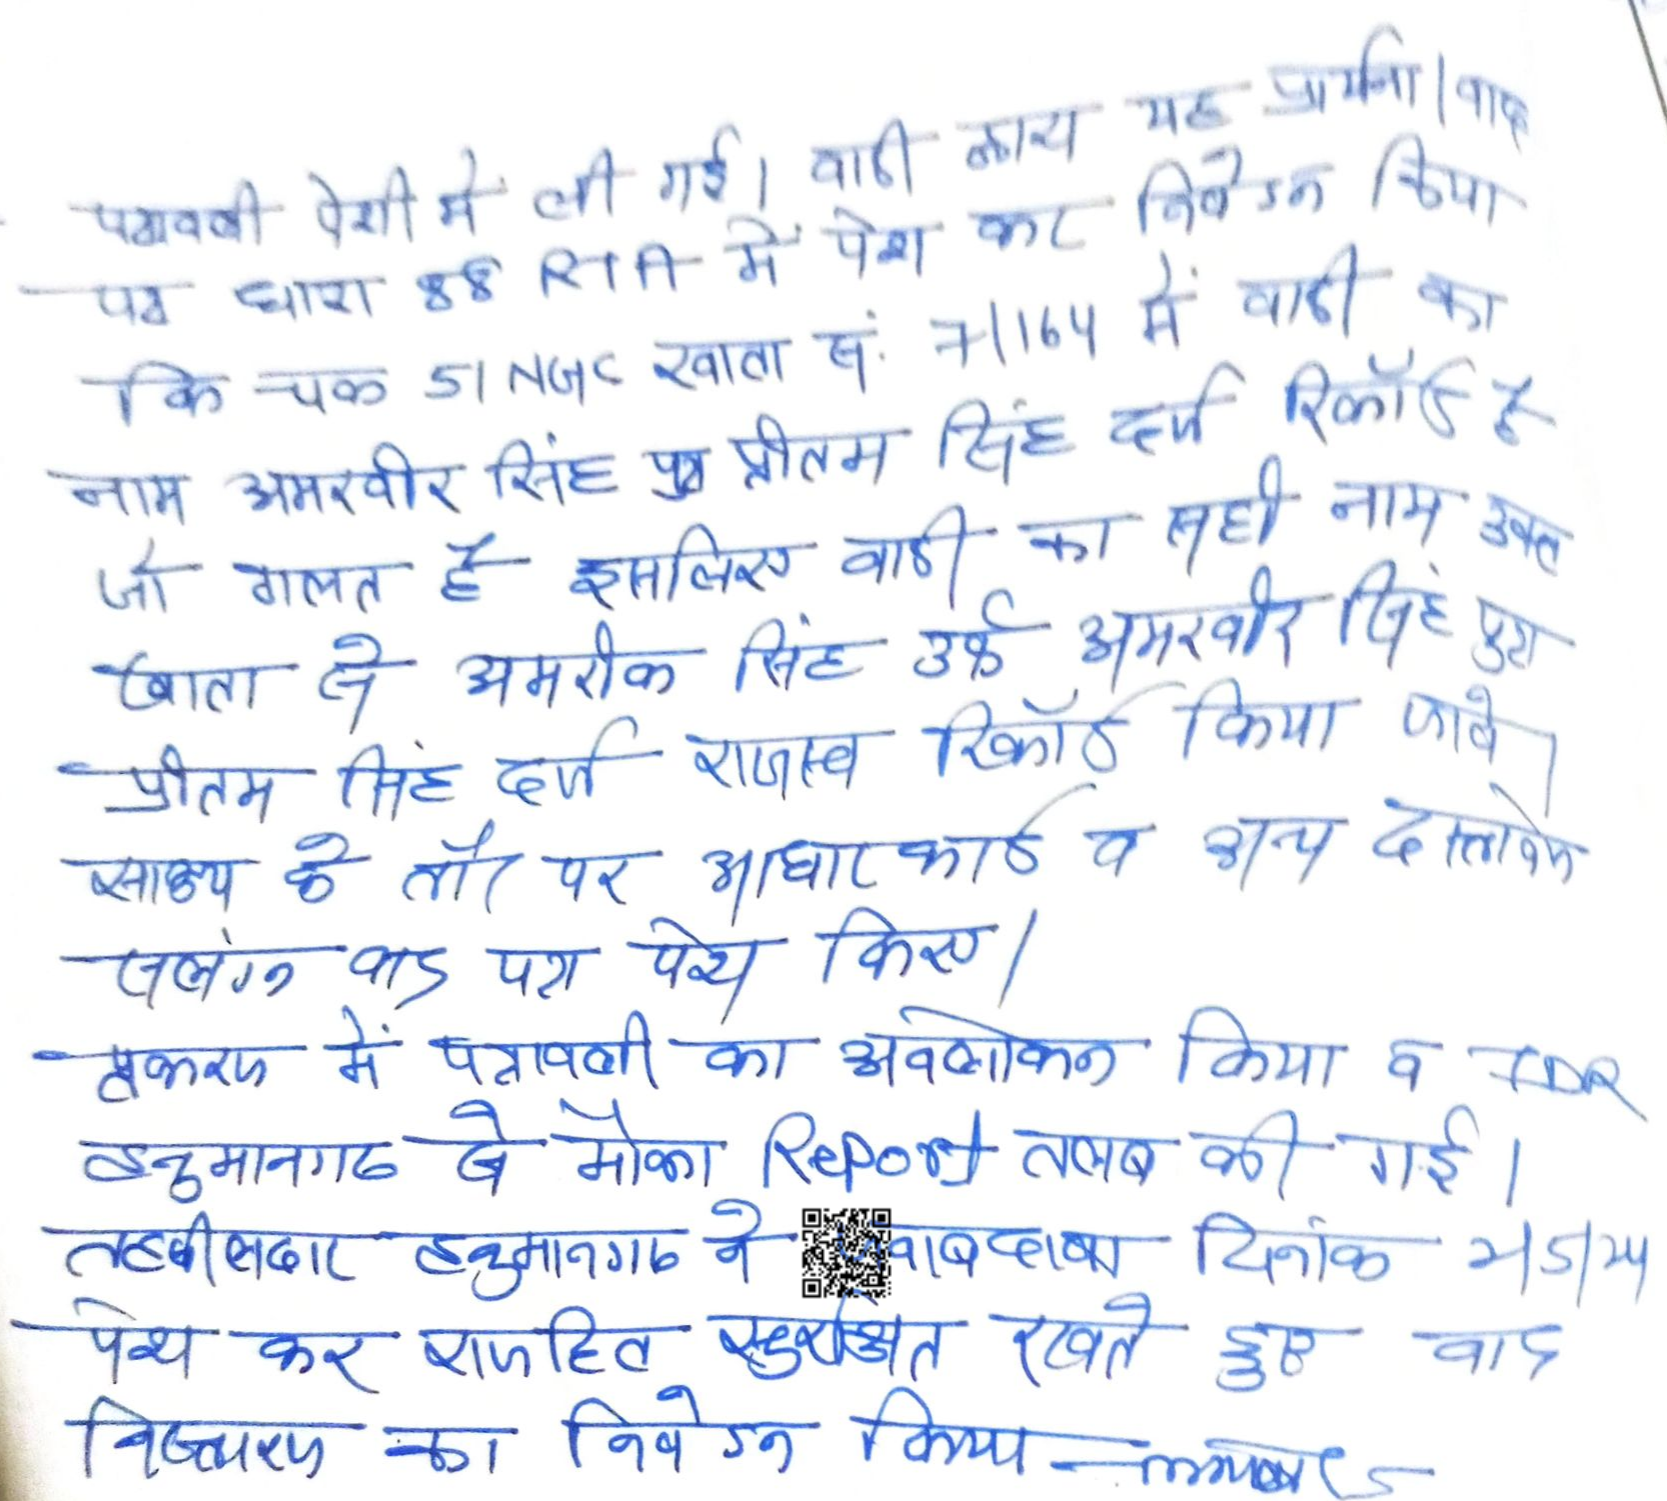 पत्रावली पेशी में ली गई। वादी द्वारा यह प्रार्थना/वाद
पत्र धारा 88 RTA में पेश कर निवेदन किया
कि चक 51 NGC खाता सं. 71/64 में वादी का
नाम अमरवीर सिंह पुत्र प्रीतम सिंह दर्ज रिकॉर्ड है
जो गलत है इसलिए वादी का सही नाम उक्त
खाता से अमरीक सिंह उर्फ अमरवीर सिंह पुत्र
प्रीतम सिंह दर्ज राजस्व रिकॉर्ड किया जावे।
साक्ष्य के तौर पर आधार कार्ड व अन्य दस्तावेज
सलंग्न वाद पत्र पेश किए।
प्रकरण में पत्रावली का अवलोकन किया व TDR
हनुमानगढ से मौका Report तलब की गई।
तहसीलदार हनुमानगढ ने दिनांक
पेश कर राजहित सुरक्षित रखते हुए वाद
निस्तारण का निवेदन किया